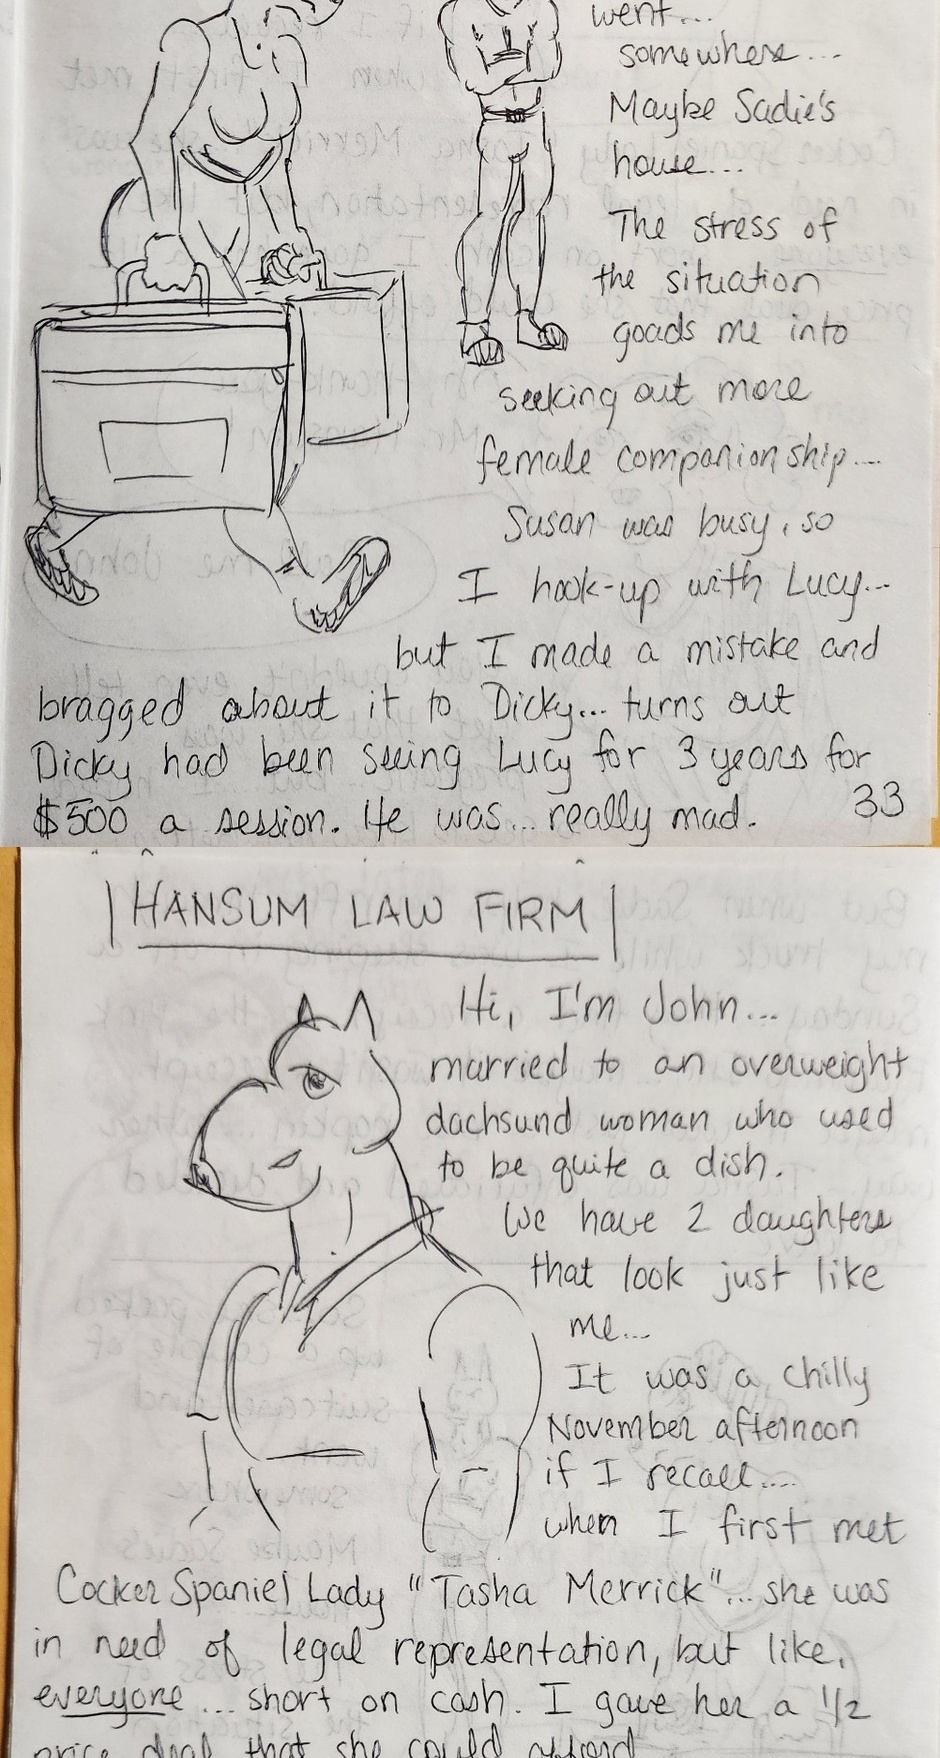 went...
somewhere...
Maybe Sadie's
house...
The stress of
the situation
goads me into
seeking out more
female companionship...
Susan was busy, so
I hook-up with Lucy...
but I made a mistake and
bragged about it to Dicky... turns out
Dicky had been seeing Lucy for 3 years for
$500 a session. He was... really mad.
33
|HANSUM LAW FIRM|
Hi, I'm John...
married to an overweight
dachsund woman who used
to be quite a dish.
We have 2 daughters
that look just like
me...
It was a chilly
November afternoon
if I recall....
when I first met
Cocker Spaniel Lady "Tasha Merrick"... she was
in need of legal representation, but like,
everyone... short on cash. I gave her a 1/2
price deal that she could afford